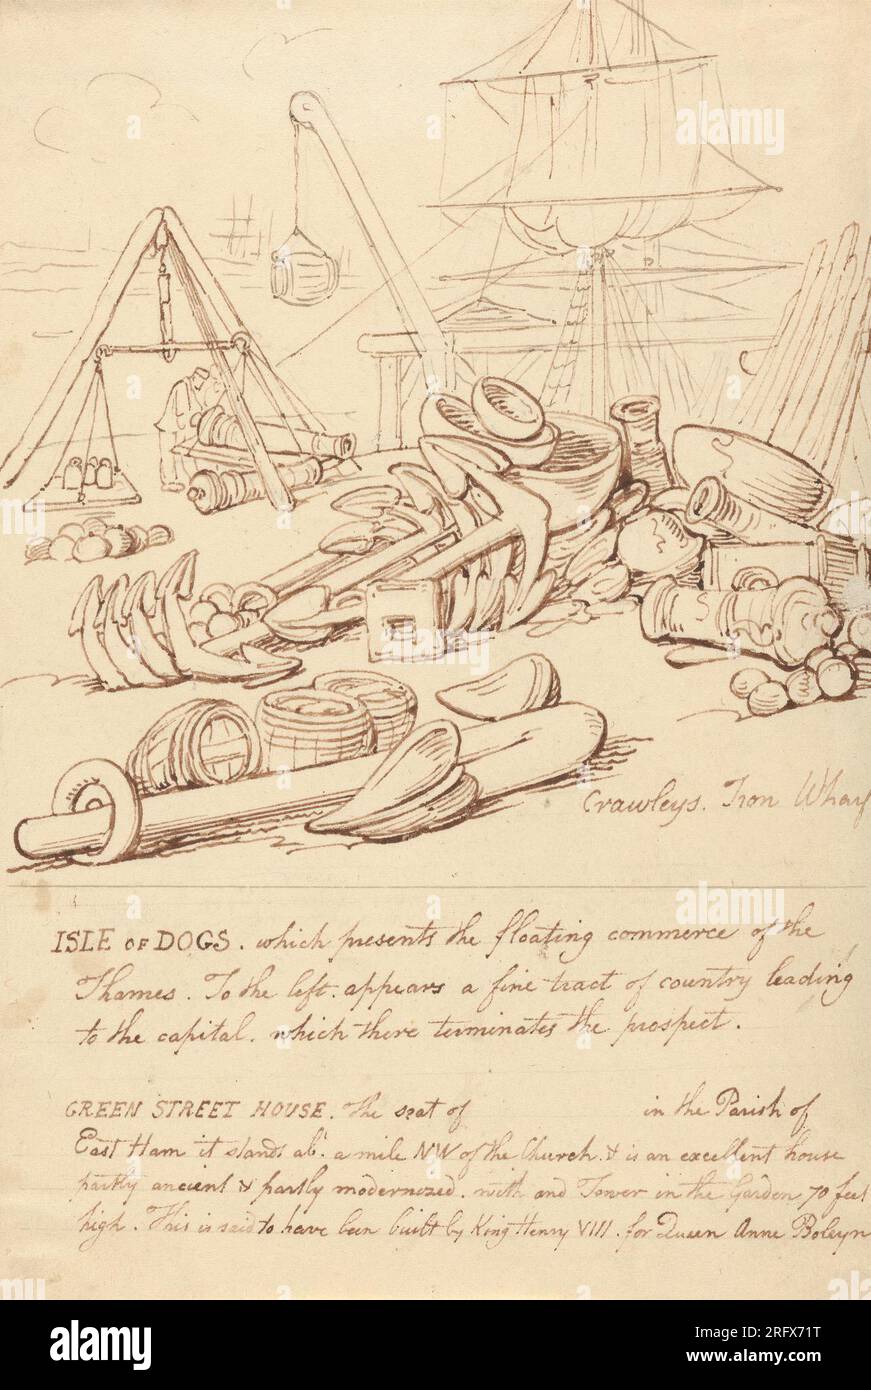 Crawleys. Iron Wharf
ISLE OF DOGS. which presents the floating commerce of the
Thames. To the left. appears a fine tract of country leading
to the capital. which there terminates the prospect.
GREEN STREET HOUSE. The seat of in the Parish of
East Ham it stands abt. a mile NW of the Church. & is an excellent house
partly ancient & partly modernized. with and Tower in the Garden 70 feet
high. This is said to have been built by King Henry VIII. for Queen Anne Boleyn
alamy
Image ID: 2RFX71T
www.alamy.com